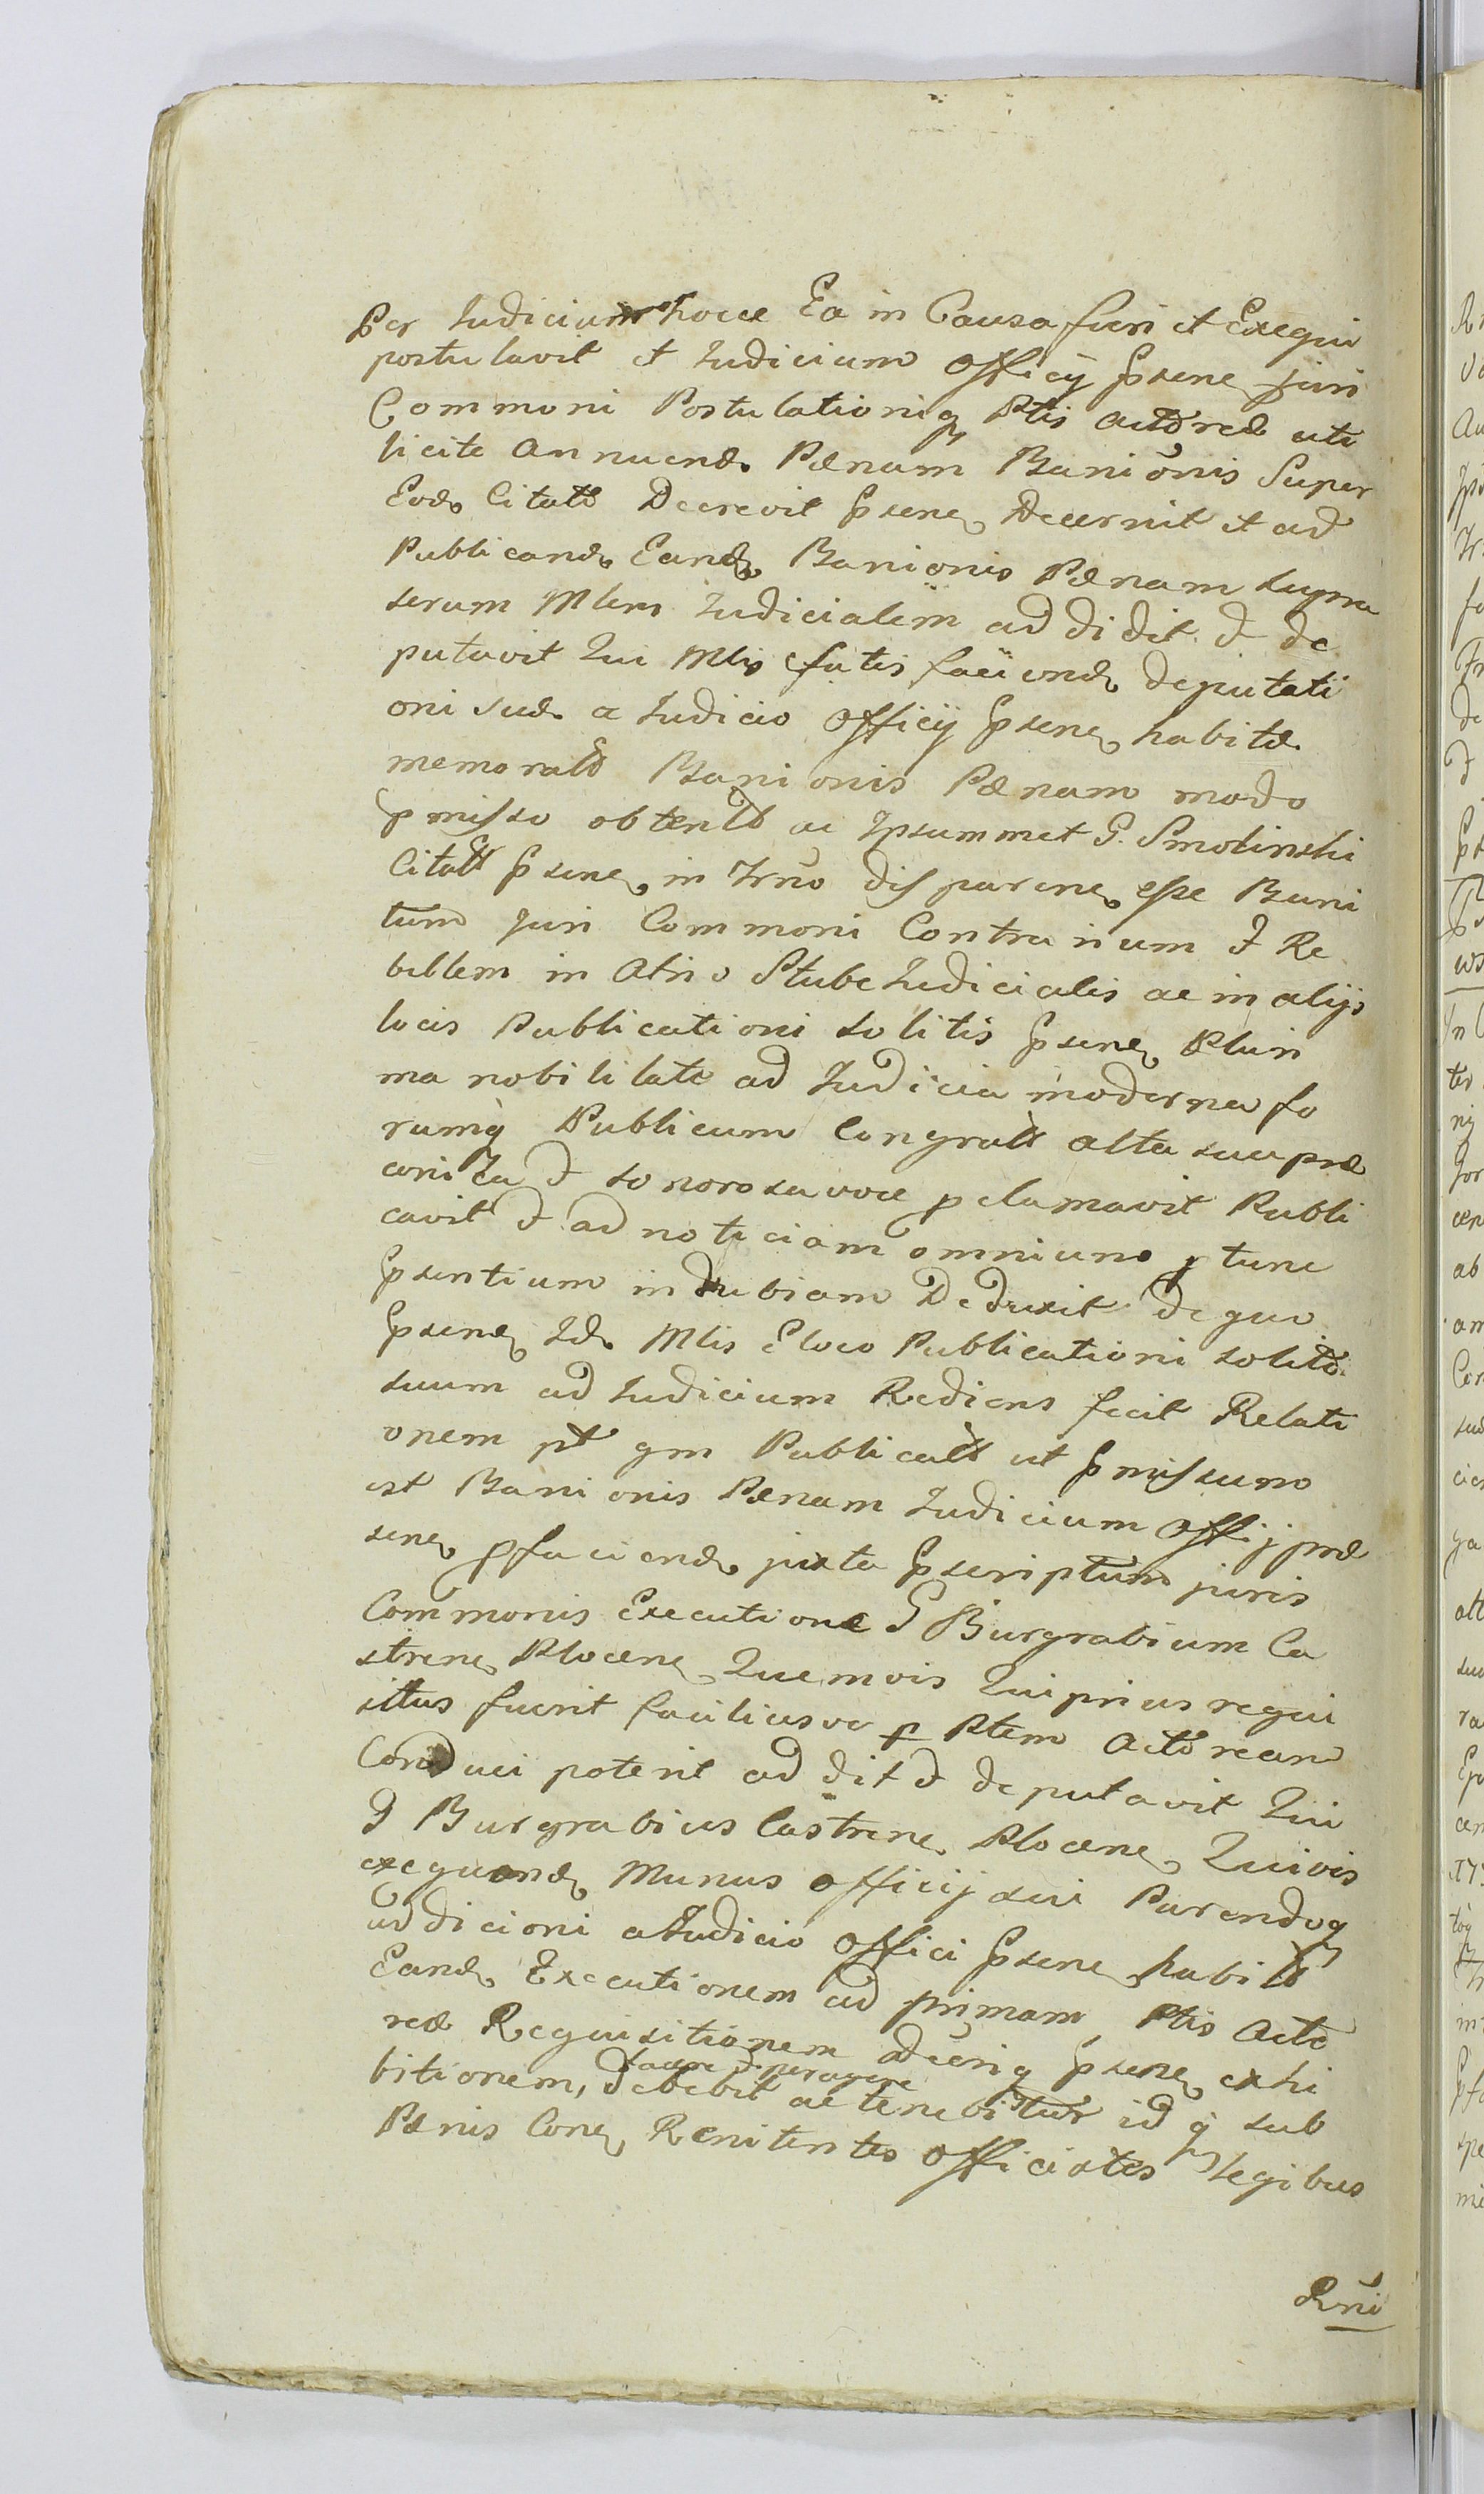 Per Judicium hocce Ea in Causa fieri et Exequi
postulavit et Judicium Officÿ pſsene juri
Commoni Postulationiq Ptis actoreæ uti
licite annuend. Pænam Banionis Super
Eod. Citato Decrevit pſsene decernit et ad
Publicand. Eand. Banionis Pænam supra
serum Mlem Judicialem addidit & de
putavit Qui Mlis ſatis faciend. deputati
oni suæ a Judicio Officÿ pſsene habitæ
memorato Banionis Pænam modo
pmiſso obtento ac Ipsummet G. Smolinski
Citatt pſsene in Trno diſparene eſse Bani
tum juri Commoni Contrarium & Re
bellem in Atrio Stubæ Judicialis ac in alÿs
locis Publicationi solitis pſsene Pluri
ma nobilitate ad Judicia moderna fo
rumq Publicum Congrato alta sua præ
conica & sonorosa voce pclamavit Publi
cavit & ad noticiam omnium p tunc
pſsentium indubiam Deduxit de quo
pſsene Id. Mlis e loco Publicationi solito
suum ad Judicium Rediens fecit Relati
onem pt qm Publicato ut pmiſsum
est Banionis Pænam Judicium Officÿ præ
sene p faciend. juxta pſscriptum juris
Commonis Executione G Burgrabium Ca
strene Plocene Quemvis Qui prius requi
situs fuerit faciliusve p Ptem Actoream
Conduci poterit addit & deputavit Qui
G Burgrabius Castrene Plocene Quivis
exequend. Munus officÿ sui Parendoq
addicioni a Judicio Offici pſsene habito
Eand. Executionem ad primam Ptis Acto
reæ Requisitionem adcitiq pſsene exhi
facere & peragere
bitionem, debebit ac tenebitur id q sub
Pænis Cone Renitentes Officiales Legibus
Rni